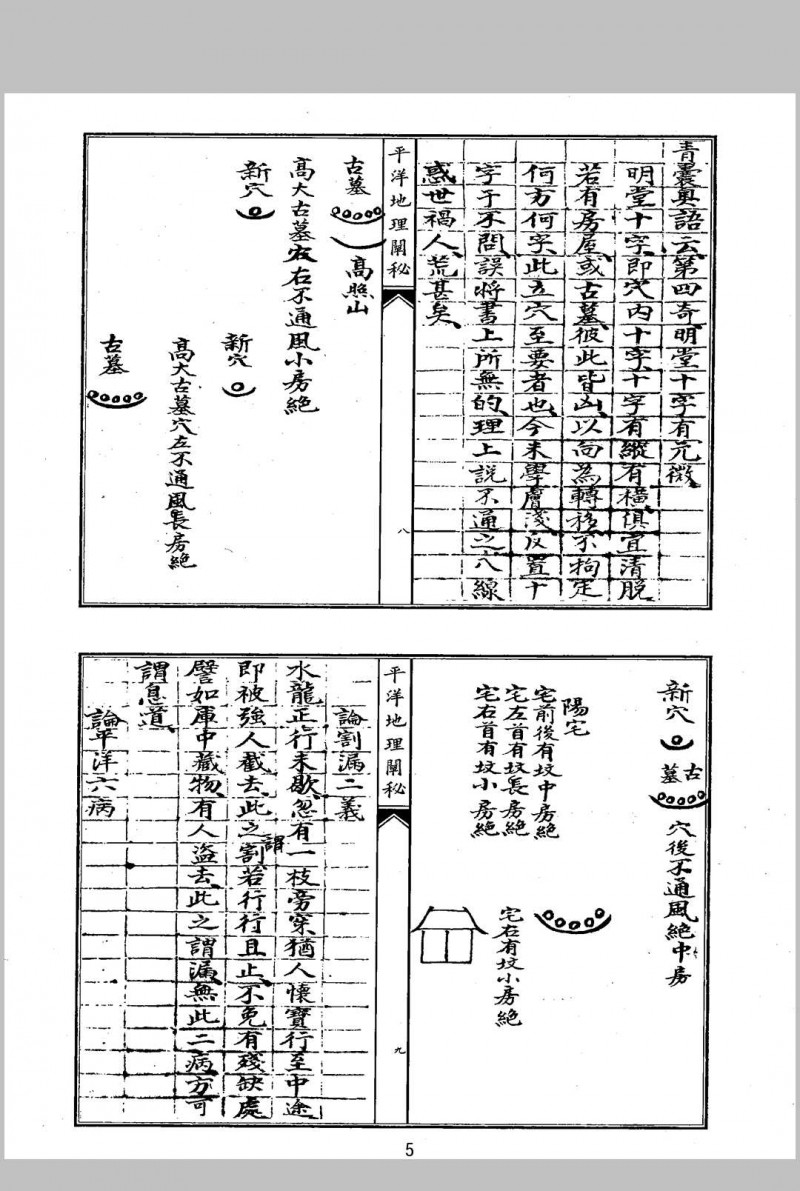 青囊奧語云第四奇明堂十字有元微
明堂十字即穴內十字十字有縱有橫俱宜清脱
若有房屋或古墓彼此皆凶以向為轉移不拘定
何方何字此立穴至要者也今未學膚淺反置十
字于不問誤將書上所無的理上說不通之八線
惑世禍人荒甚矣
平洋地理闡秘
八
古墓
高照山
高大古墓在右不通風小房絶
新穴
新穴
高大古墓穴左不通風長房絶
古墓
新穴
古墓
穴後不通風絕中房
陽宅
宅前後有坟中房絶
宅左首有坟長房絶
宅右首有坟小房絶
宅右有坟小房絶
平洋地理闡秘
九
論割漏二義
水龍正行未歇忽有一枝旁穿猶人懷寶行至中途
即被強人截去此之謂割若行行且止不免有殘缺處
譬如庫中藏物有人盜去此之謂漏無此二病方可
謂息道
論平洋六病
5